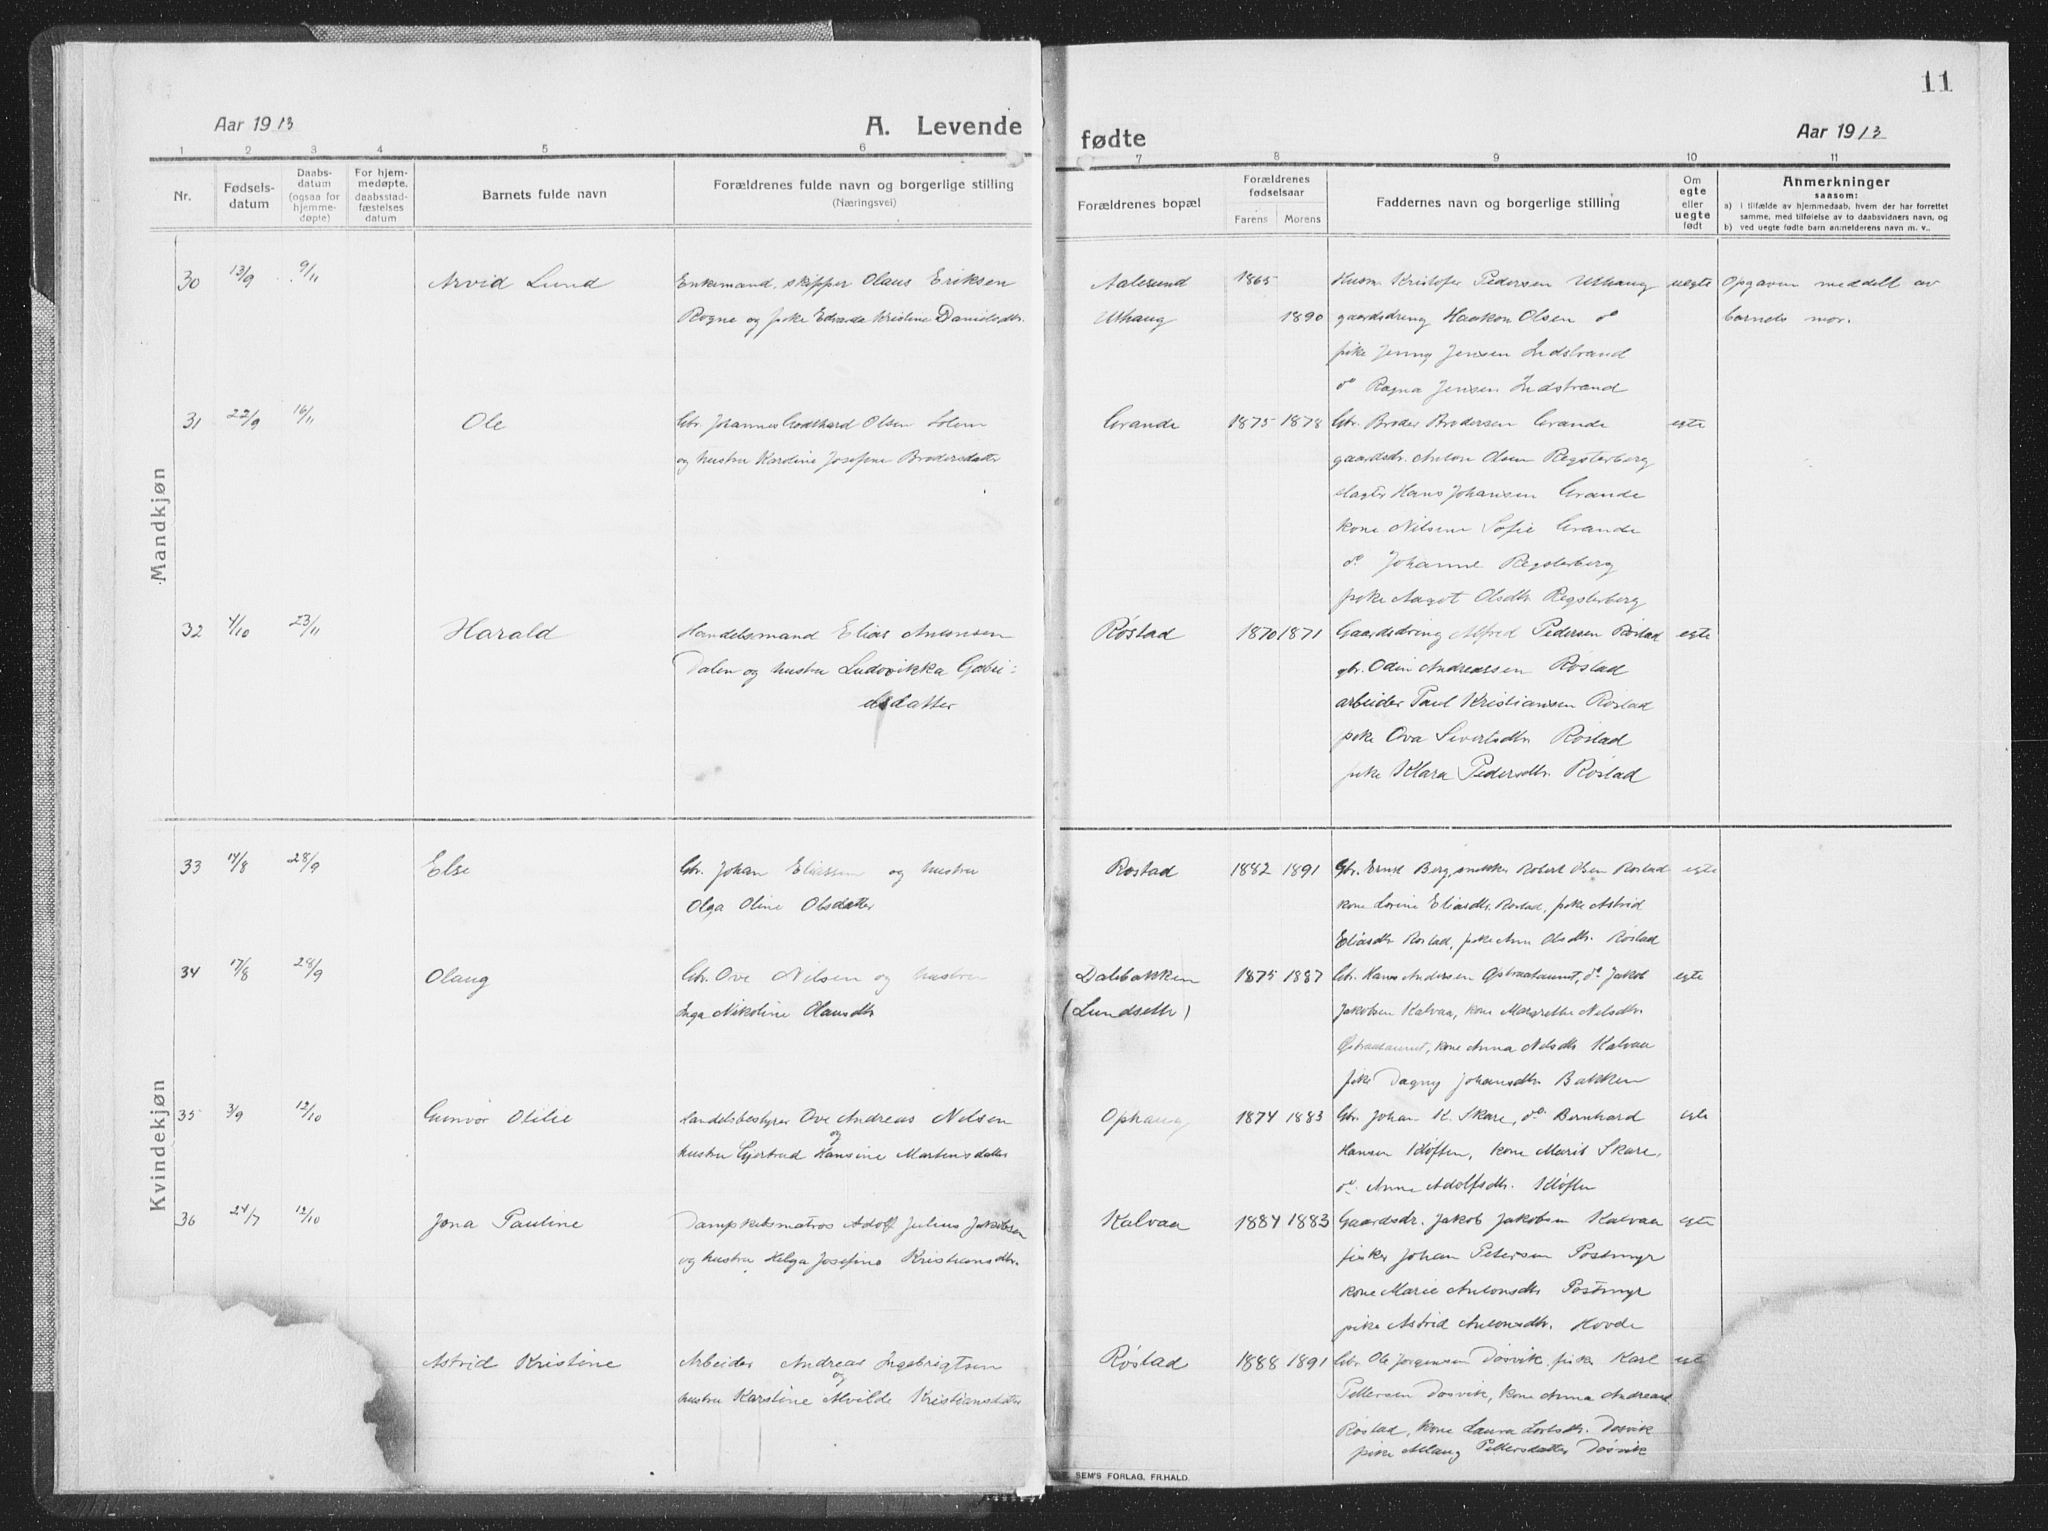 11
Aar 1913
A. Levende
fødte
Aar 1913
1 2 3 4 5 6 7 8 9 10 11
Nr.
Fødsels-
datum
Daabs-
datum
(ogsaa for
hjemme-
døpte)
For hjem-
medøpte,
daabsstad-
fæstelses
datum
Barnets fulde navn
Forældrenes fulde navn og borgerlige stilling
(Næringsvei)
Forældrenes bopæl
Forældrenes
fødselsaar
Farens Morens
Faddernes navn og borgerlige stilling
Om
egte
eller
uegte
født
Anmerkninger
saasom:
a) i tilfælde av hjemmedaab, hvem der har forrettet
samme, med tilføielse av to daabsvidners navn, og
b) ved uegte fødte barn anmelderens navn m. v..
Mandkjøn
30 13/9 9/11 Arvid Lund Enkemand, skipper Olaus Eriksen
Rogne og pike Edvarda Kristine Danielsdtr.
Aalesund 1865
Uthaug 1890
Husm. Kristofer Pedersen Uthaug
gaardsdreng Haakon Olsen do
pike Jenny Jensen Indstrand
do Ragna Jensen Indstrand
uegte
Opgaven meddelt av
barnets mor.
31 22/9 16/11 Ole Gbr. Johannes Godthard Olsen Solem
og hustru Kardine Josefine Brodersdatter
Grande 1875 1878
Gbr. Broder Brodersen Grande
gaardsdr. Anton Olsen Regsterberg
slagter Hans Johansen Grande
kone Nilsine Sofie Grande
do Johanne Regsterberg
pike Aagot Olsdtr. Regsterberg
egte
32 4/10 23/11 Harald Handelsmand Elias Antonsen
Dalen og hustru Ludovikka Gabri-
elsdatter
Røstad 1870 1871
Gaardsdreng Alfred Pedersen Røstad
gbr. Odin Andreassen Røstad
arbeider Paul Kristiansen Røstad
pike Ova Sivertsdtr. Røstad
pike Klara Pedersdtr. Røstad
egte
Kvindekjøn
33 14/8 28/9 Else Gbr. Johan Eliassen og hustru
Olga Oline Olsdatter
Røstad 1882 1891
Gbr. Ernst Berg, snekker Robert Olsen Røstad
kone Lovine Eliasdtr. Røstad, pike Astrid
Eliasdtr. Røstad, pike Anna Olsdtr. Røstad
egte
34 17/8 28/9 Olaug Gbr. Ove Nilsen og hustru
Inga Nikoline Olausdtr
Dalebakken
(Lundseth) 1875 1887
Gbr. Hans Andersen Opstraataunet, do Jakob
Jakobsen Kalvaa, kone Margrethe Nilsdtr.
Østraataunet, kone Anna Nilsdtr. Kalvaa
pike Dagny Johansdtr. Bakken
egte
35 3/9 12/10 Gunvor Otilie Handelsbestyrer Ove Andreas Nilsen
og
hustru Gjertrud Hansine Martinsdatter
Ophaug 1874 1883
Gbr. Johan K. Skare, do. Bernhard
Hansen Kløften, kone Marit Skare,
do. Anna Adolfsdtr. Kløften
egte
36 24/7 12/10 Jona Pauline Dampskibsmatros Adolf Julius Jakobsen
og hustru Helga Josefine Kristiansdtr.
Kalvaa 1884 1883
Gaardsdr. Jakob Jakobsen Kalvaa
fisker Johan Petersen Postmyr
kone Marie Antonsdtr Postmyr
pike Astrid Antonsdtr. Hovde
egte
Astrid Kristine Arbeider Andreas Ingebrigtsen
og
hustru Karstine Alvilde Kristiansdatter
Røstad 1888 1891
Gbr. Ole Jørgensen Døsvik, fisker Karl
Pettersen Døsvik, kone Anna Andreasd
Røstad, kone Laura Døsvik
pike Aslaug Pettersdatter Døsvik
egte
SEM'S FORLAG, FR.HALD.